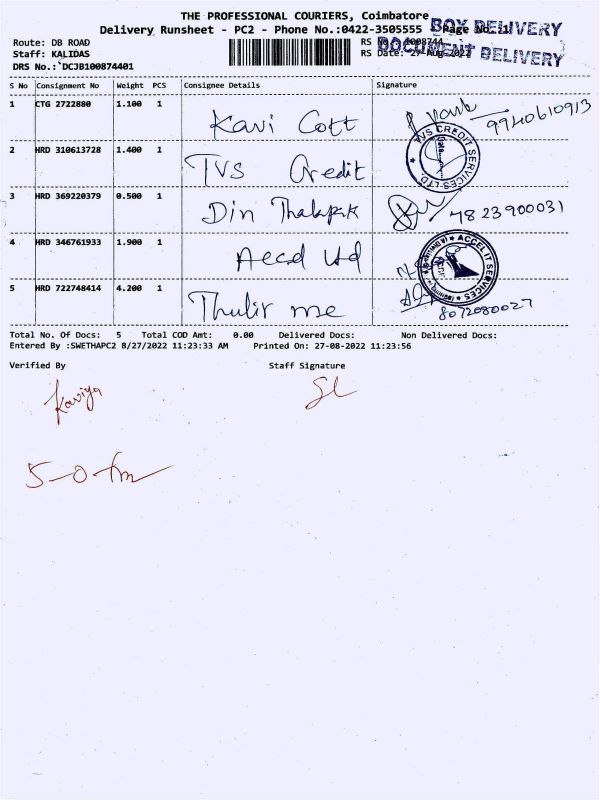 THE PROFESSIONAL COURIERS, Coimbatore
Delivery Runsheet - PC2 - Phone No.:0422-3505555 Page No.:1
BOX DELIVERY
DOCUMENT DELIVERY
Route: DB ROAD
Staff: KALIDAS
RS Date: 27-Aug-2022
DRS No.: DCJB100874401
S No Consignment No Weight PCS Consignee Details Signature
1 CTG 2722880 1.100 1 Kavi Cott 9940610913
2 HRD 310613728 1.400 1 TVS Credit
TVS CREDIT SERVICES LTD.
3 HRD 369220379 0.500 1 Din 7823900031
4 HRD 346761933 1.900 1 Ltd
ACCEL IT SERVICES
5 HRD 722748414 4.200 1 Thulir me 8072080027
Total No. Of Docs: 5 Total COD Amt: 0.00 Delivered Docs: Non Delivered Docs:
Entered By :SWETHAPC2 8/27/2022 11:23:33 AM Printed On: 27-08-2022 11:23:56
Verified By Staff Signature
Kaviya